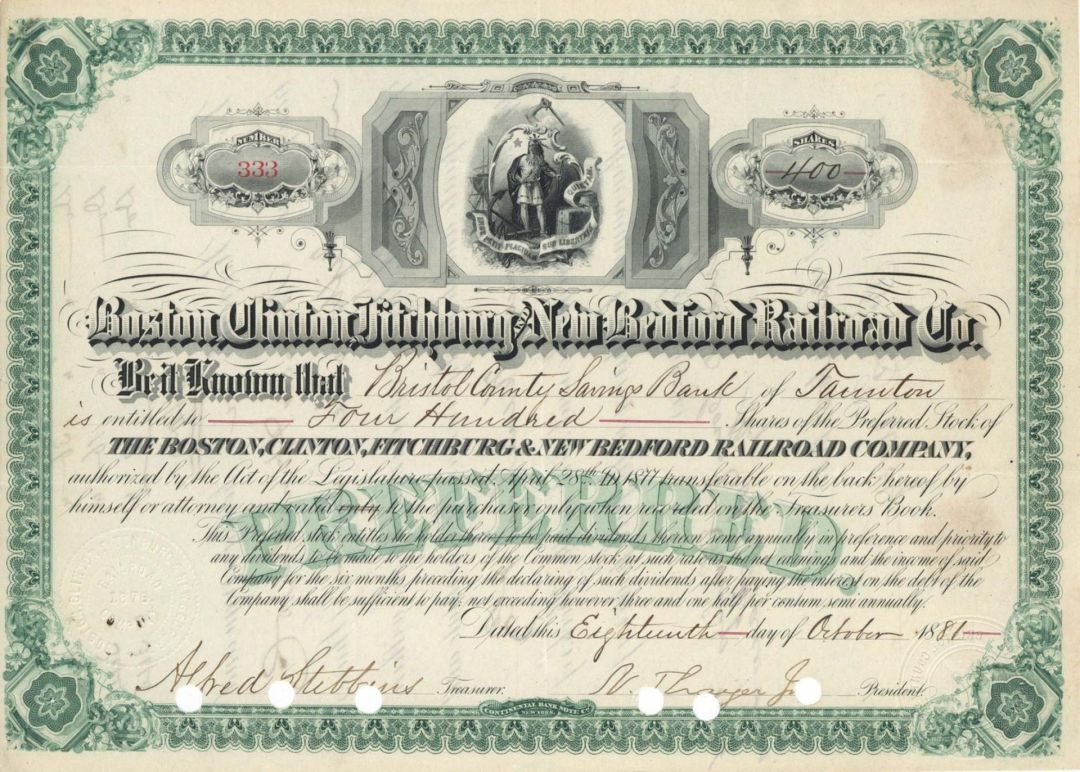 NUMBER
333
SHARES
400
ENSE PETIT PLACIDAM SUB LIBERTATE QUIETAM
Boston, Clinton, Fitchburg AND New Bedford Railroad Co.
Be it Known that Bristol County Savings Bank of Taunton
is entitled to Four Hundred Shares of the Preferred Stock of
THE BOSTON, CLINTON, FITCHBURG & NEW BEDFORD RAILROAD COMPANY,
authorized by the Act of the Legislature passed, April 28th 1877 transferable on the back hereof by
himself or attorney and valid only to the purchaser only when recorded on the Treasurers Book.
PREFERRED
This Preferred stock entitles the holder thereof to be paid dividends thereon semi annually in preference and priority to
any dividends to be made to the holders of the Common stock at such rate as the net earnings and the income of said
Company for the six months preceding the declaring of such dividends after paying the interest on the debt of the
Company shall be sufficient to pay, not exceeding however three and one half per centum, semi annually.
Dated this Eighteenth day of October 1881
Alfred Stebbins Treasurer. N. Thayer Jr President.
CONTINENTAL BANK NOTE Co.
NEW YORK.
RAILROAD
1876